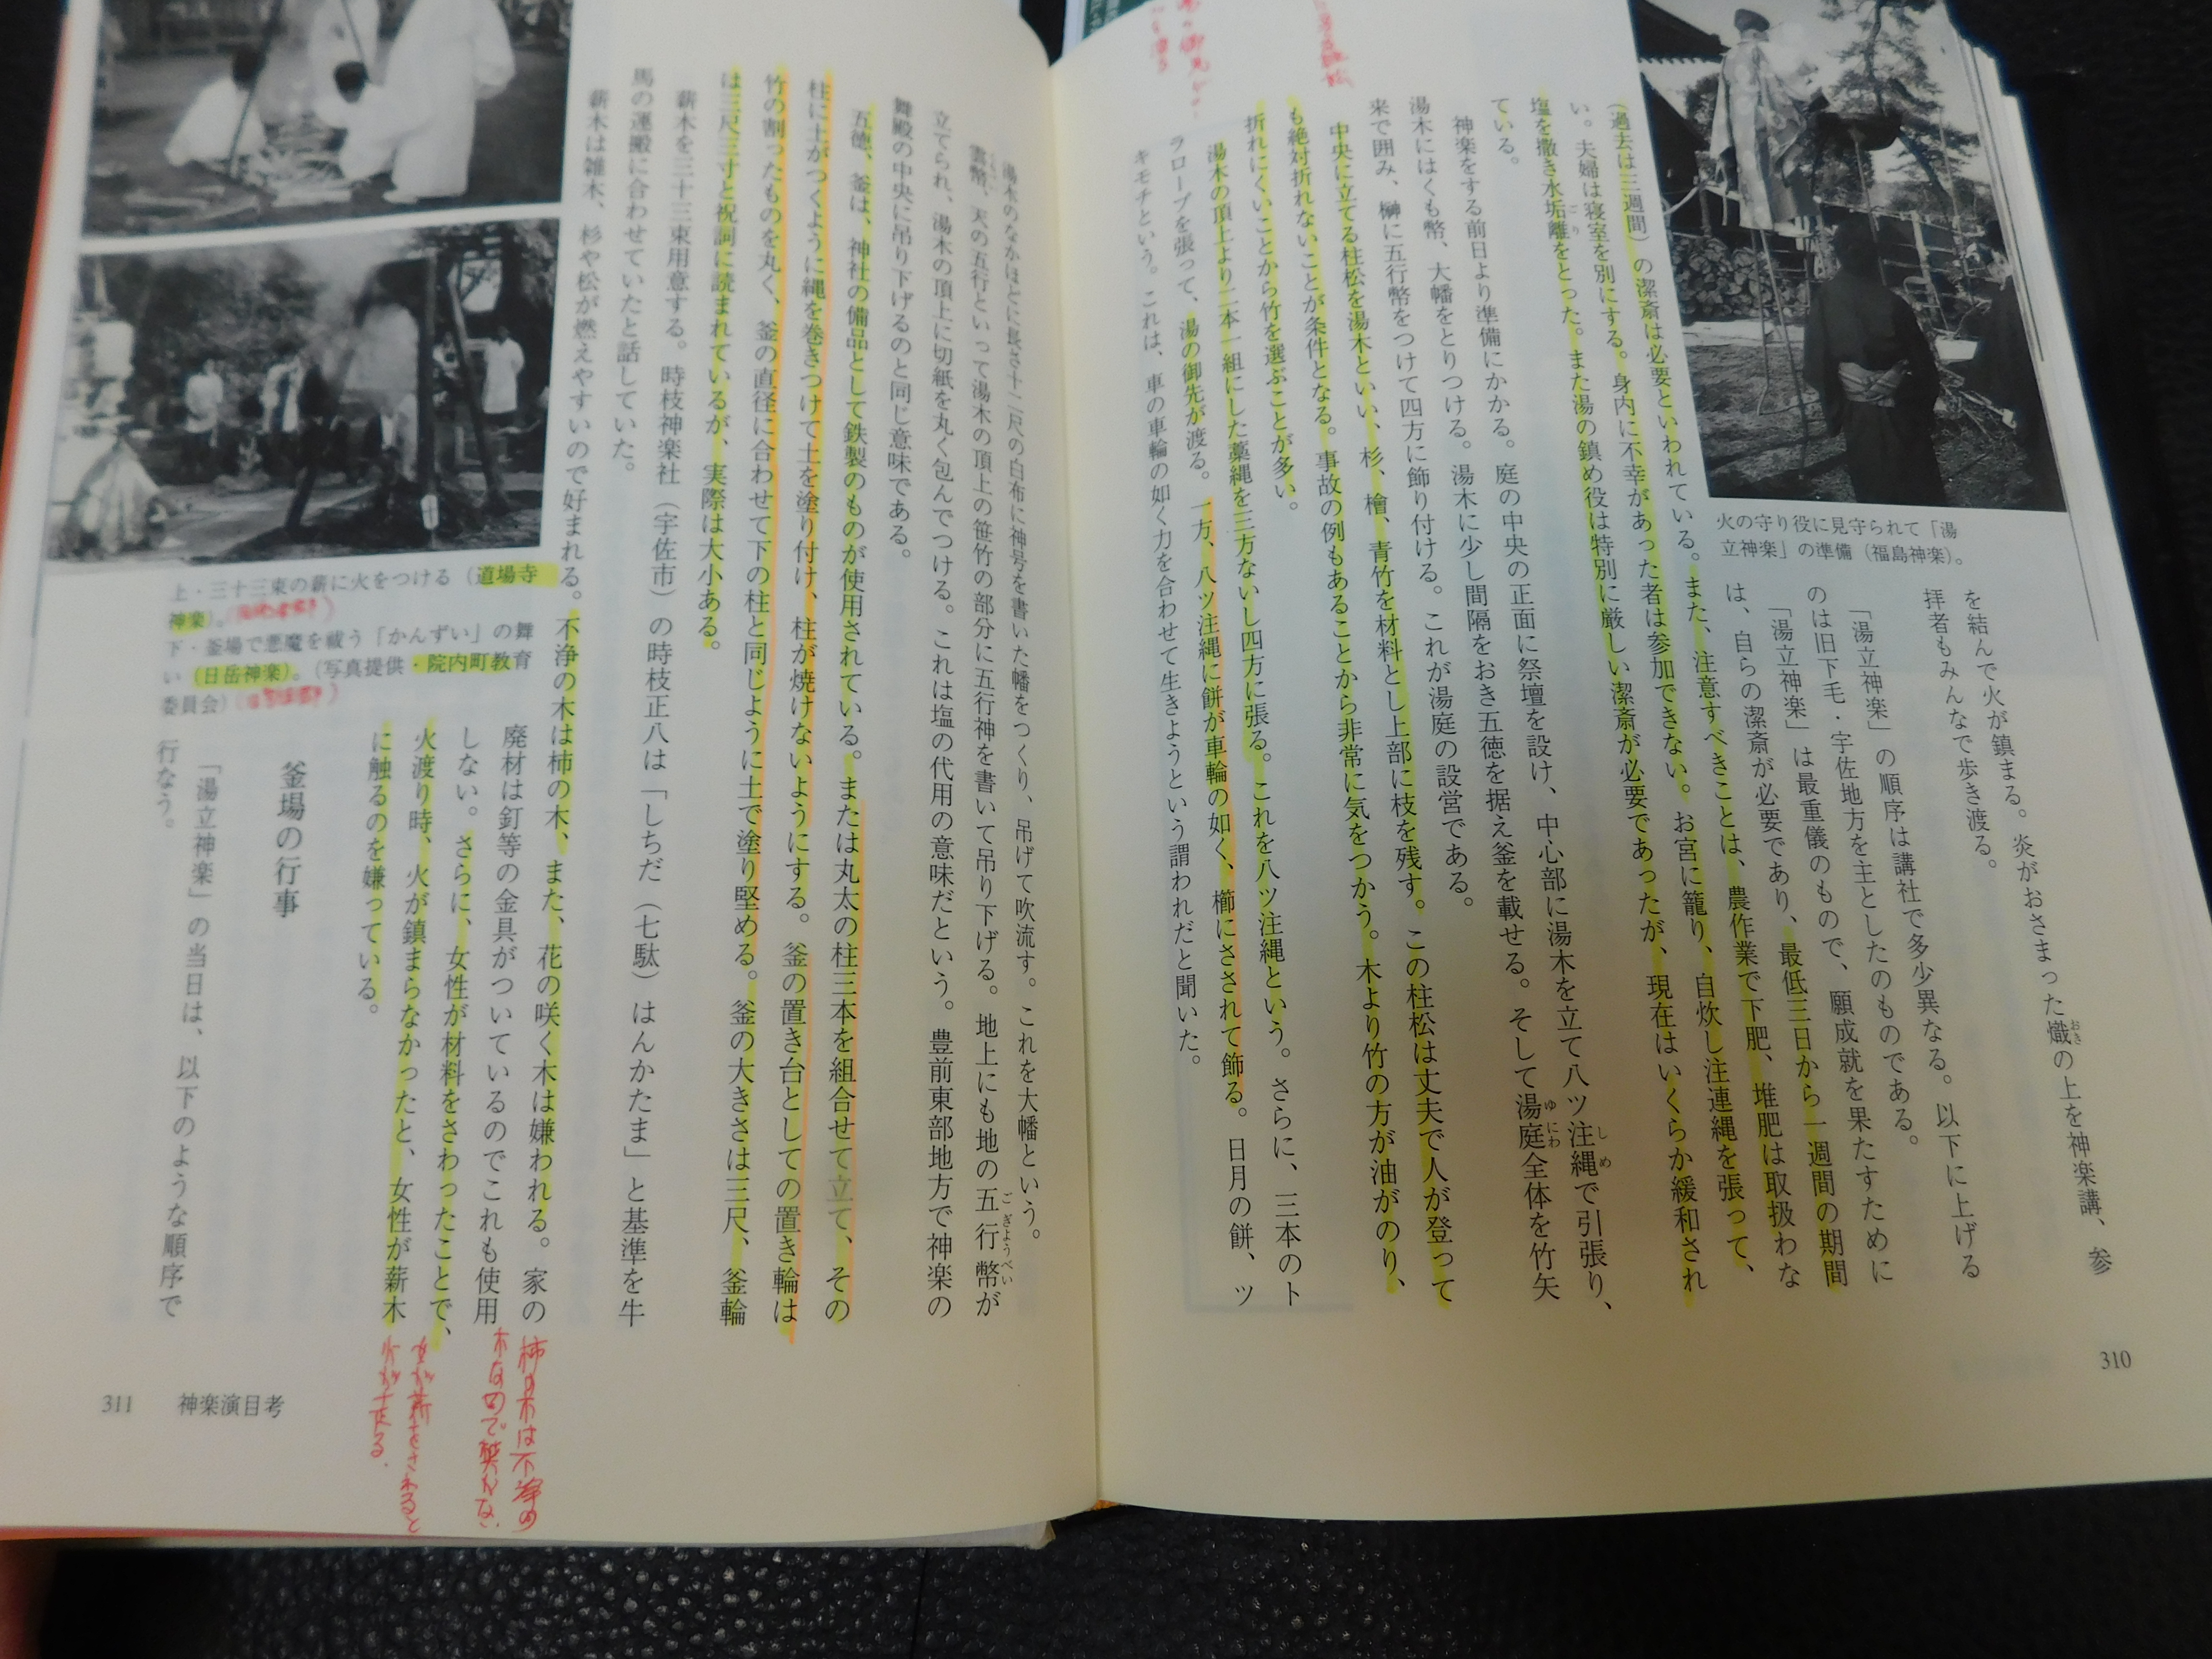 310
火の守り役に見守られて「湯
立神楽」の準備（福島神楽）。
を結んで火が鎮まる。炎がおさまった熾の上を神楽講、参
拝者もみんなで歩き渡る。
「湯立神楽」の順序は講社で多少異なる。以下に上げる
のは旧下毛・宇佐地方を主としたのものである。
「湯立神楽」は最重儀のもので、願成就を果たすために
は、自らの潔斎が必要であり、最低三日から一週間の期間
（過去は三週間）の潔斎は必要といわれている。また、注意すべきことは、農作業で下肥、堆肥は取扱わな
い。夫婦は寝室を別にする。身内に不幸があった者は参加できない。お宮に籠り、自炊し注連縄を張って、
塩を撒き水垢離をとった。また湯の鎮め役は特別に厳しい潔斎が必要であったが、現在はいくらか緩和され
ている。
神楽をする前日より準備にかかる。庭の中央の正面に祭壇を設け、中心部に湯木を立て八ツ注縄で引張り、
湯木にはくも幣、大幡をとりつける。湯木に少し間隔をおき五徳を据え釜を載せる。そして湯庭全体を竹矢
来で囲み、榊に五行幣をつけて四方に飾り付ける。これが湯庭の設営である。
中央に立てる柱松を湯木といい、杉、檜、青竹を材料とし上部に枝を残す。この柱松は丈夫で人が登って
も絶対折れないことが条件となる。事故の例もあることから非常に気をつかう。木より竹の方が油がのり、
折れにくいことから竹を選ぶことが多い。
湯木の頂上より二本一組にした藁縄を三方ないし四方に張る。これを八ツ注縄という。さらに、三本のト
ラロープを張って、湯の御先が渡る。一方、八ツ注縄に餅が車輪の如く、櫛にさされて飾る。日月の餅、ツ
キモチという。これは、車の車輪の如く力を合わせて生きようという謂われだと聞いた。
湯木のなかほどに長さ十二尺の白布に神号を書いた幡をつくり、吊げて吹流す。これを大幡という。
雲幣、天の五行といって湯木の頂上の笹竹の部分に五行神を書いて吊り下げる。地上にも地の五行幣が
立てられ、湯木の頂上に切紙を丸く包んでつける。これは塩の代用の意味だという。豊前東部地方で神楽の
舞殿の中央に吊り下げるのと同じ意味である。
五徳、釜は、神社の備品として鉄製のものが使用されている。または丸太の柱三本を組合せて立て、その
柱に土がつくように縄を巻きつけて土を塗り付け、柱が焼けないようにする。釜の置き台としての置き輪は
竹の割ったものを丸く、釜の直径に合わせて下の柱と同じように土で塗り堅める。釜の大きさは三尺、釜輪
は三尺三寸と祝詞に読まれているが、実際は大小ある。
薪木を三十三束用意する。時枝神楽社（宇佐市）の時枝正八は「しちだ（七駄）はんかたま」と基準を牛
馬の運搬に合わせていたと話していた。
薪木は雑木、杉や松が燃えやすいので好まれる。不浄の木は柿の木、また、花の咲く木は嫌われる。家の
廃材は釘等の金具がついているのでこれも使用
しない。さらに、女性が材料をさわったことで、
火渡り時、火が鎮まらなかったと、女性が薪木
に触るのを嫌っている。
釜場の行事
「湯立神楽」の当日は、以下のような順序で
行なう。
上・三十三束の薪に火をつける（道場寺
神楽）。
下・釜場で悪魔を祓う「かんずい」の舞
い（日岳神楽）。（写真提供・院内町教育
委員会）
柿の木は不浄の
木なので
311 神楽演目考